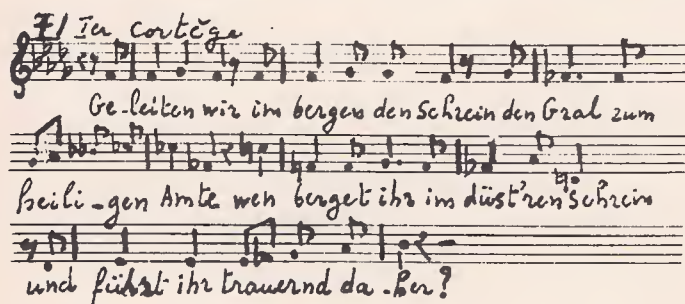 7/ Ier cortège
Ge-leiten wir im bergen den Schrein den Gral zum
heili-gen Amte wen berget ihr im düst'ren Schrein
und führt ihr trauernd da-her?